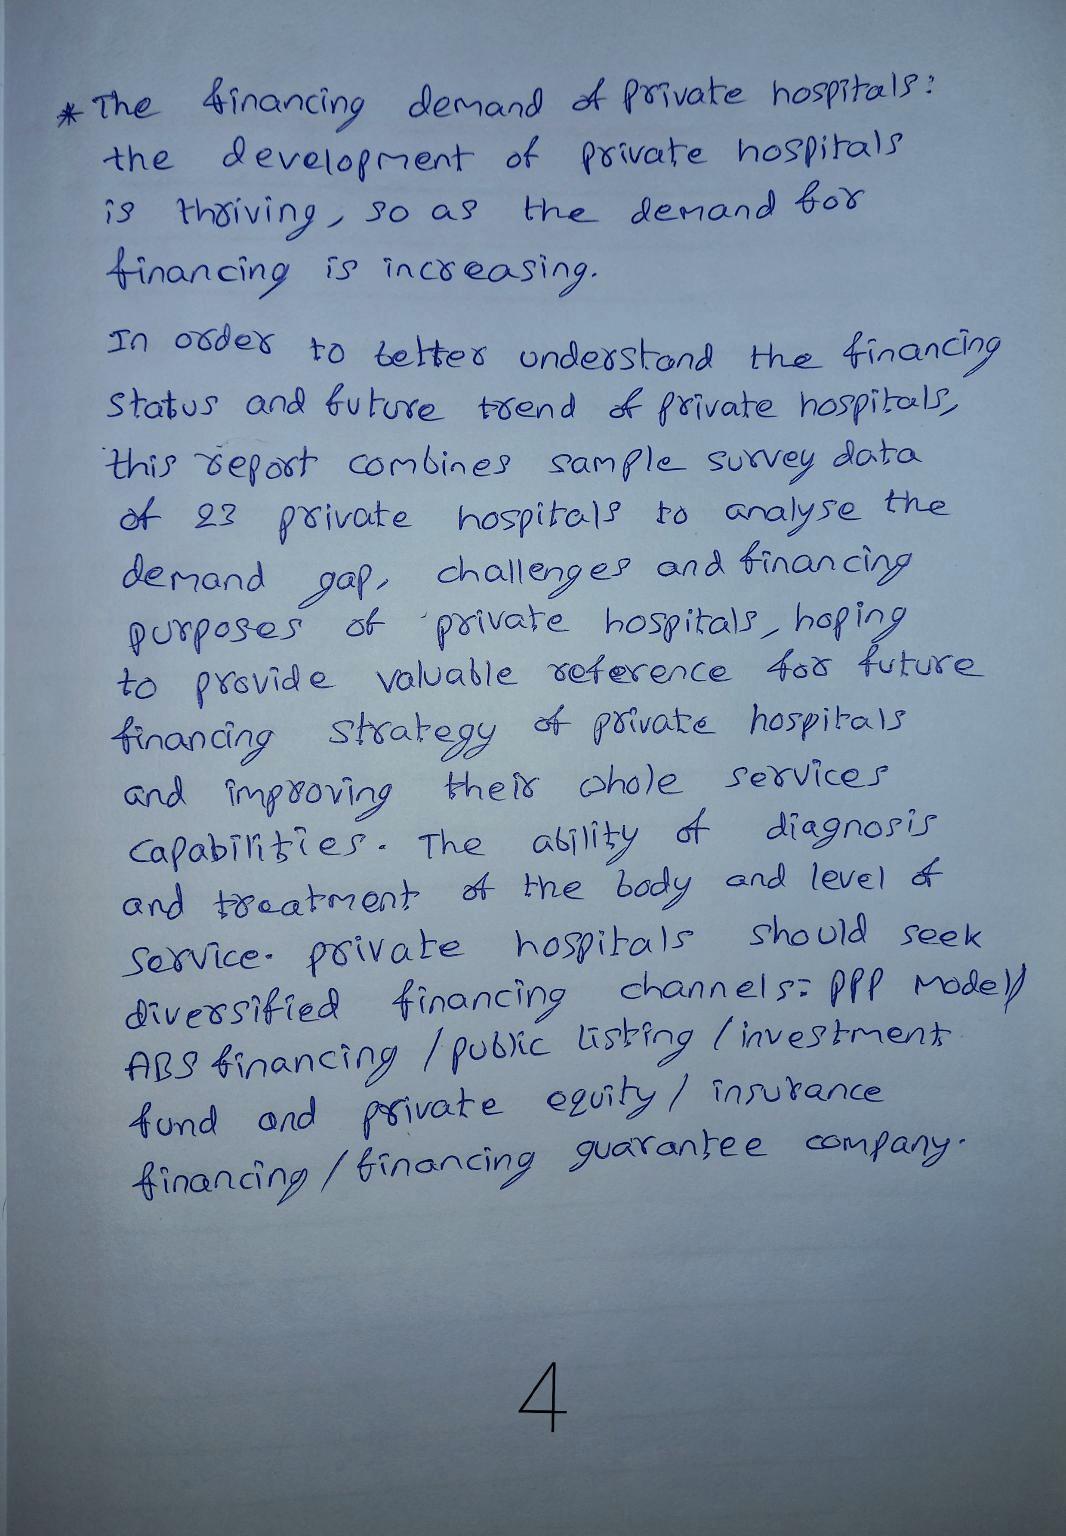 * The financing demand of private hospitals:
the development of private hospitals
is thriving, so as the demand for
financing is increasing.
In order to better understand the financing
status and future trend of private hospitals,
this report combines sample survey data
of 23 private hospitals to analyse the
demand gap, challenges and financing
purposes of private hospitals, hoping
to provide valuable reference for future
financing strategy of private hospitals
and improving their whole services
capabilities. The ability of diagnosis
and treatment of the body and level of
service. private hospitals should seek
diversified financing channels: PPP Model/
ABS financing / public listing / investment
fund and private equity / insurance
financing / financing guarantee company.
4